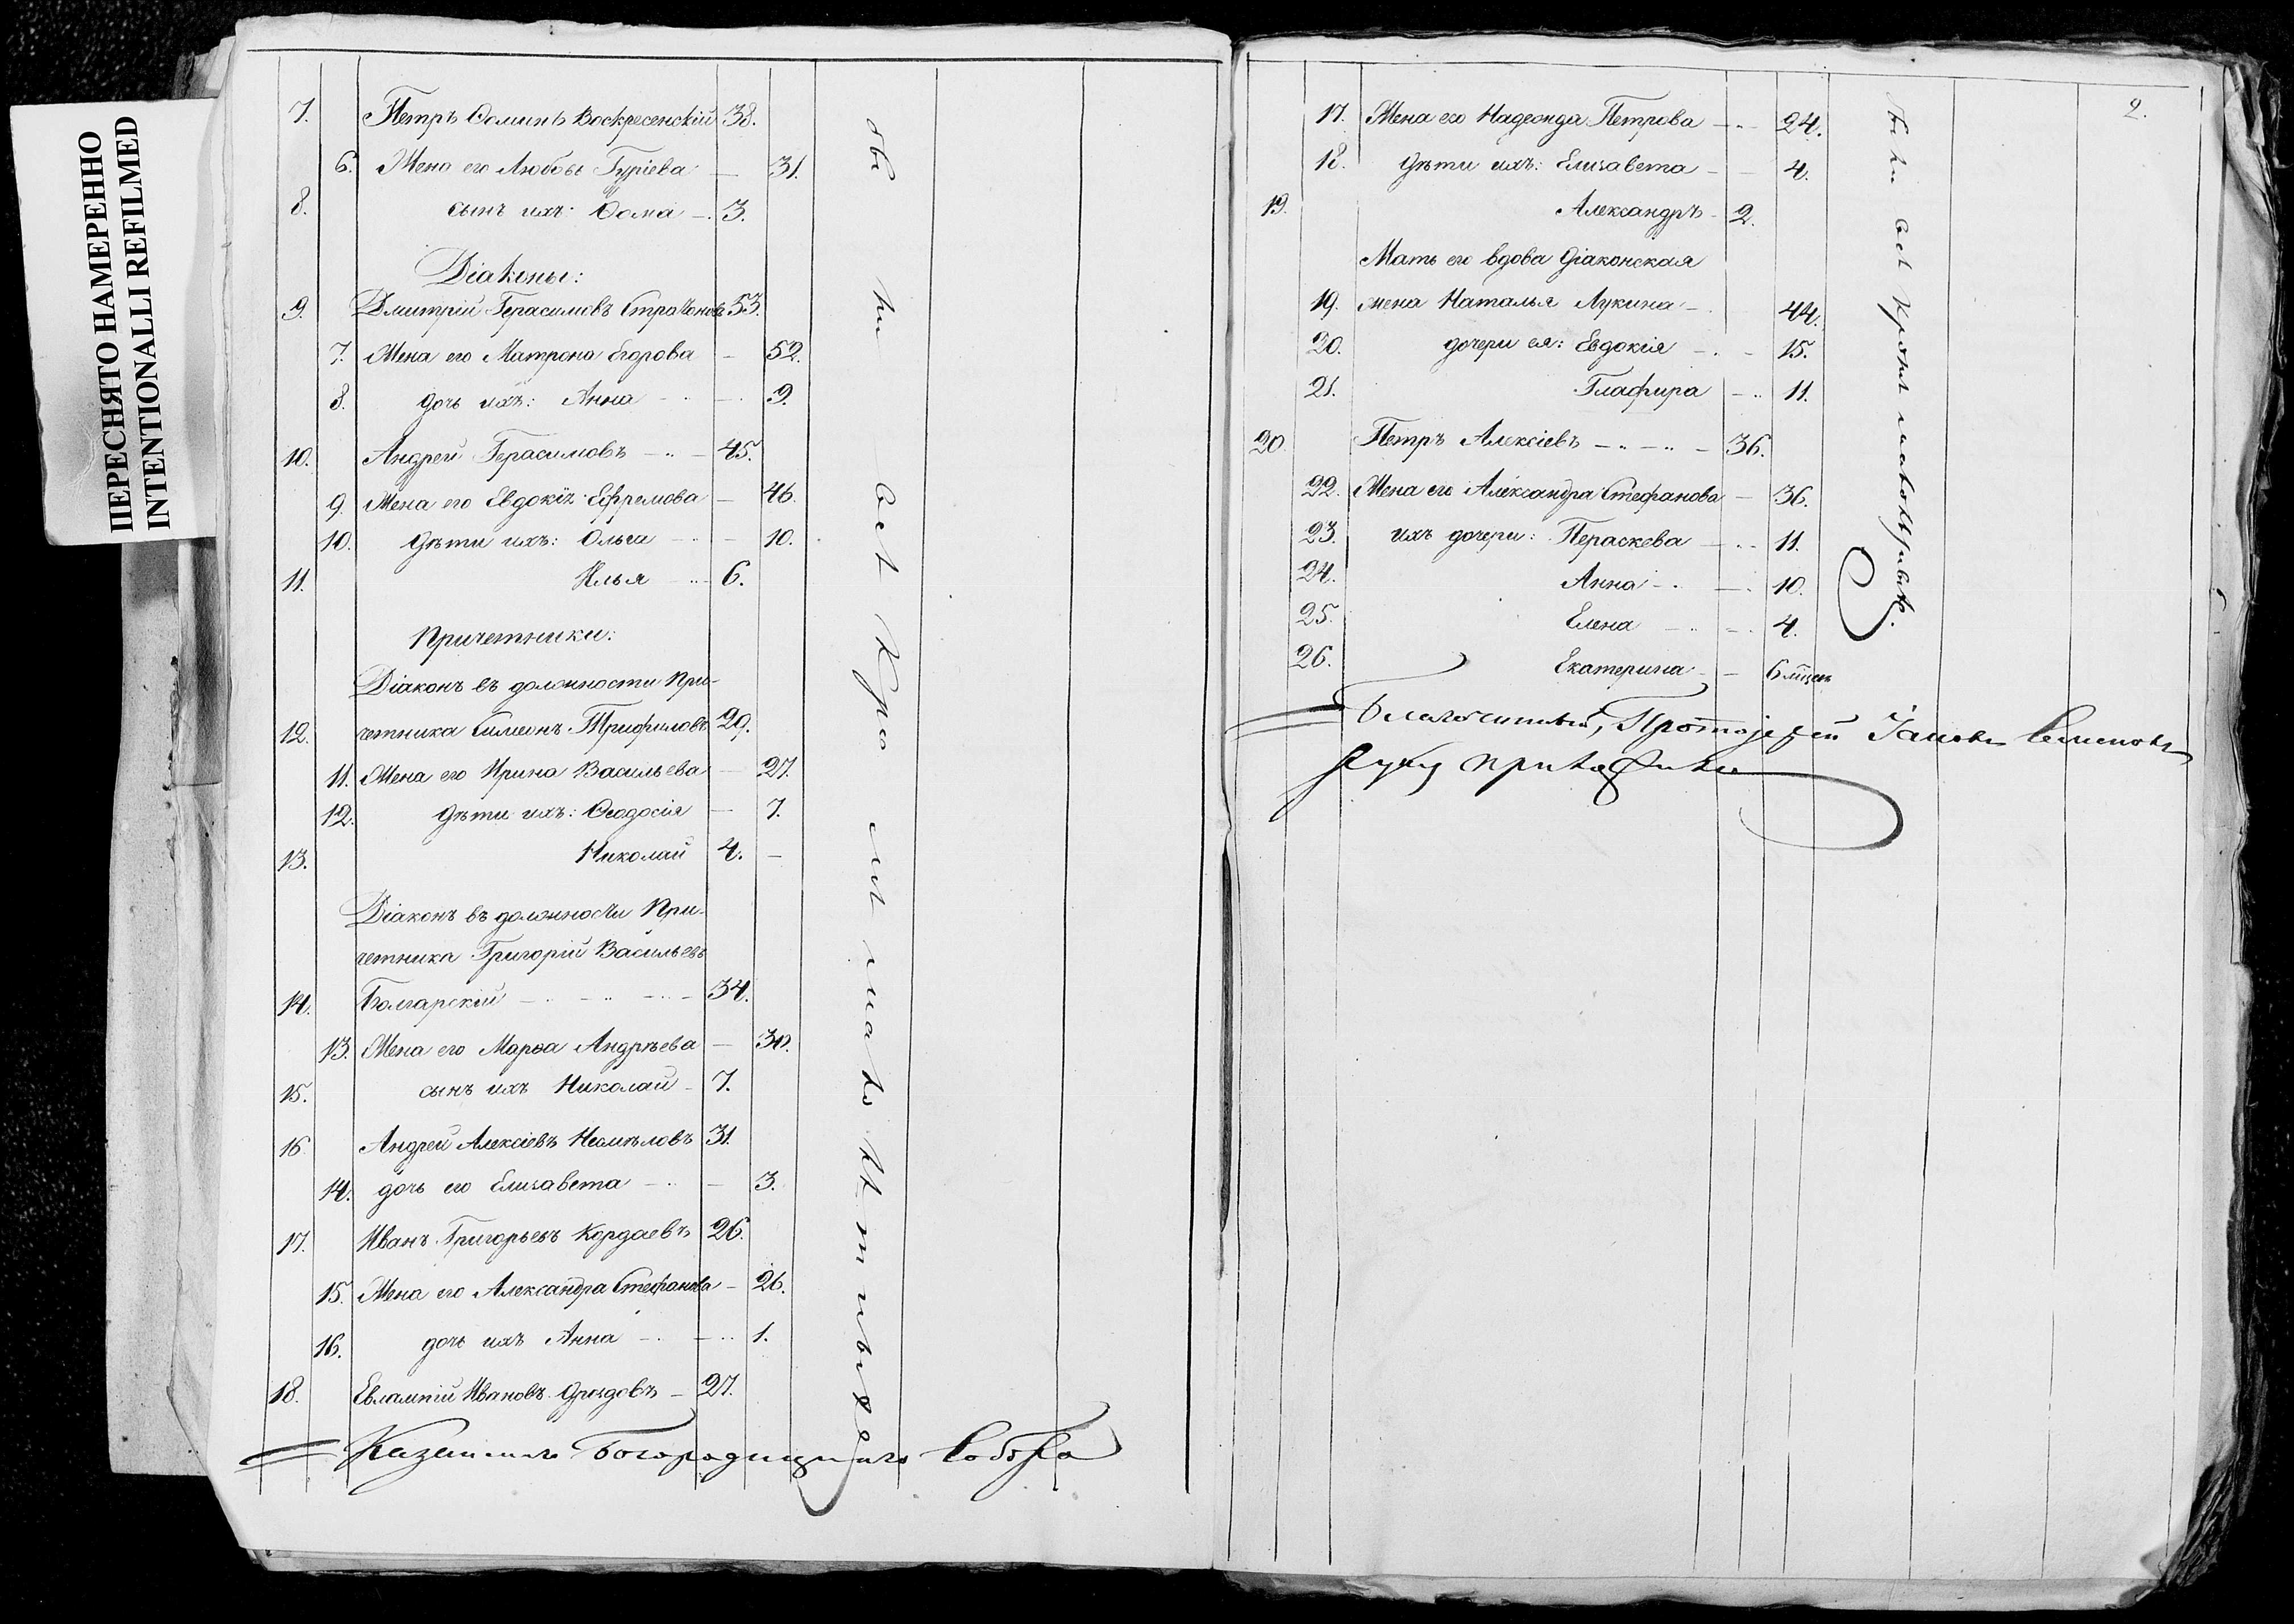 ПЕРЕСНЯТО НАМЕРЕННО
INTENTIONALLI REFILMED
7. Петръ Ѳоминъ Воскресенскій 38.
6. Жена его Любовь Гуріева — 31.
8. сынъ ихъ: Ѳома — 3.
Діаконы:
9. Дмитрій Герасимовъ Стратоновъ 53.
7. Жена его Матрона Егорова — 52.
8. дочь ихъ: Анна — 9.
10. Андрей Герасимовъ — 45.
9. Жена его Евдокія Ефремова — 46.
10. Дѣти ихъ: Ольга — 10.
11. Илья — 6.
Причетники:
Діаконъ въ должности При-
12. четника Симеонъ Трифиловъ 29.
11. Жена его Ирина Васильева — 27.
12. Дѣти ихъ: Ѳеодосія — 7.
13. Николай 4. —
Діаконъ въ должности При-
четника Григорій Васильевъ
14. Болгарскій — 34.
13. Жена его Марѳа Андрѣева — 30.
15. сынъ ихъ Николай — 7.
16. Андрей Алексіевъ Несмѣловъ 31.
14. дочь его Елизавета — 3.
17. Иванъ Григорьевъ Кордаевъ 26.
15. Жена его Александра Стефанова — 26.
16. дочь ихъ Анна — 1.
18. Евлампій Ивановъ Дроздовъ — 27.
Казанского Богородицкаго Собора
2.
17. Жена его Надежда Петрова — 24.
18. Дѣти ихъ: Елизавета — 4.
19. Александръ — 2.
Мать его вдова Діаконская
19. жена Наталья Лукина — 44.
20. дочери ея: Евдокія — 15.
21. Глафира — 11.
20. Петръ Алексіевъ — 36.
22. Жена его Александра Стефанова — 36.
23. ихъ дочери: Параскева — 11.
24. Анна — 10.
25. Елена — 4.
26. Екатерина — 6 мѣцев
Благочинный, Протоіерей Іаковъ Семеновъ
руку приложилъ